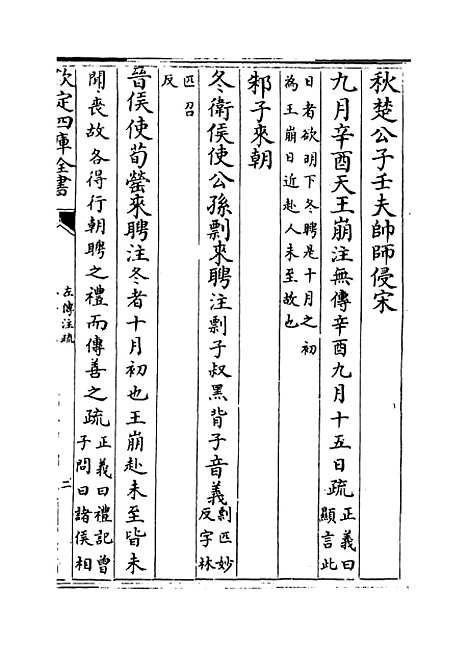 秋楚公子壬夫帥師侵宋
九月辛酉天王崩注無傳辛酉九月十五日疏正義曰
顯言此
日者欲明下冬聘是十月之初
為王崩日近赴人未至故也
邾子來朝
冬衛侯使公孫剽來聘注剽子叔黑背子音義剽匹妙
反字林
匹召
反
晉侯使荀罃來聘注冬者十月初也王崩赴未至皆未
聞喪故各得行朝聘之禮而傳善之疏正義曰禮記曾
子問曰諸侯相
欽定四庫全書
左傳注疏
二